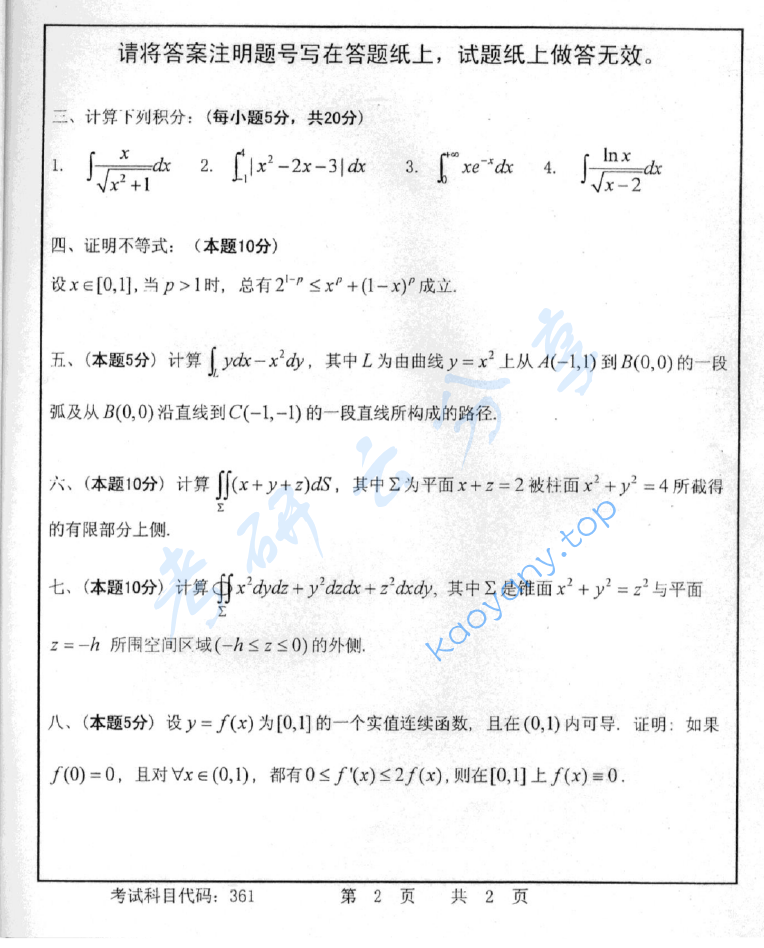 请将答案注明题号写在答题纸上，试题纸上做答无效。
三、计算下列积分：(每小题5分，共20分)
1. ∫ x/√(x²+1) dx 2. ∫₋₁⁴ |x²−2x−3| dx 3. ∫₀^{+∞} xe^{−x}dx 4. ∫ ln x/√(x−2) dx
四、证明不等式：（本题10分）
设x∈[0,1],当p>1时，总有2^{1−p} ≤ x^p + (1−x)^p 成立.
五、(本题5分) 计算∫_L ydx − x²dy，其中L为由曲线y=x²上从A(−1,1)到B(0,0)的一段
弧及从B(0,0)沿直线到C(−1,−1)的一段直线所构成的路径.
六、(本题10分) 计算∬_Σ (x+y+z)dS，其中Σ为平面x+z=2被柱面x²+y²=4所截得
的有限部分上侧.
七、(本题10分) 计算∯_Σ x²dydz + y²dzdx + z²dxdy, 其中Σ是锥面x²+y²=z²与平面
z=−h 所围空间区域(−h≤z≤0)的外侧.
八、(本题5分) 设y=f(x)为[0,1]的一个实值连续函数，且在(0,1)内可导．证明：如果
f(0)=0，且对∀x∈(0,1)，都有0≤f'(x)≤2f(x),则在[0,1]上f(x)≡0.
考研云分享
kaoyany.top
考试科目代码：361 第 2 页 共 2 页